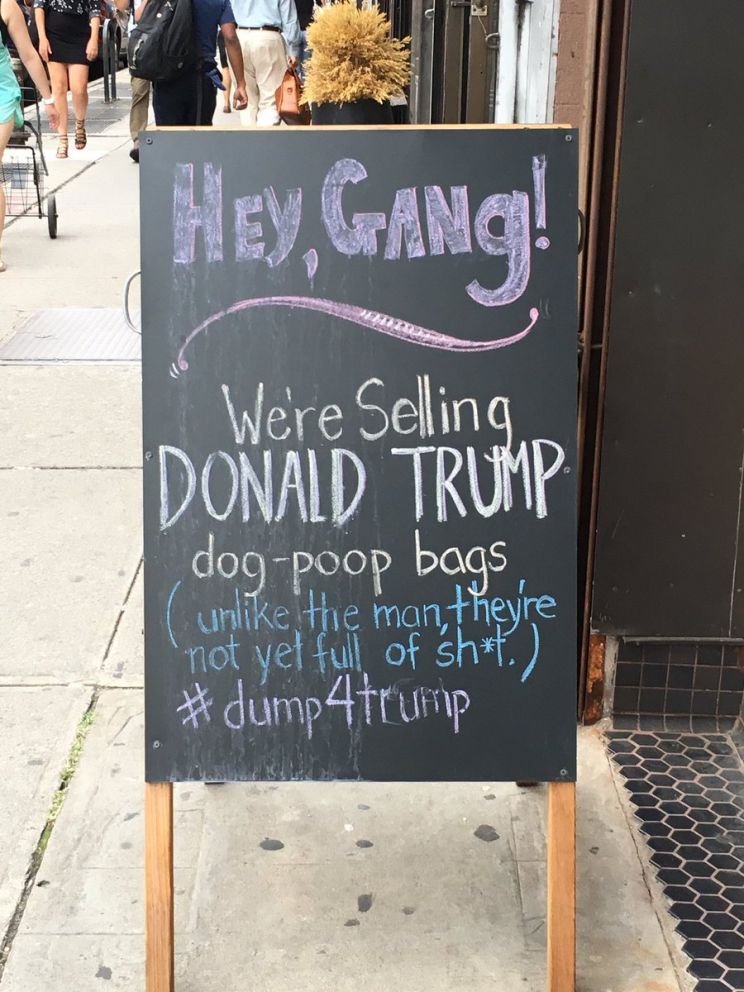 HEY, GANG!
We're Selling
DONALD TRUMP
dog-poop bags
(unlike the man, they're
not yet full of sh*t.)
#dump4trump